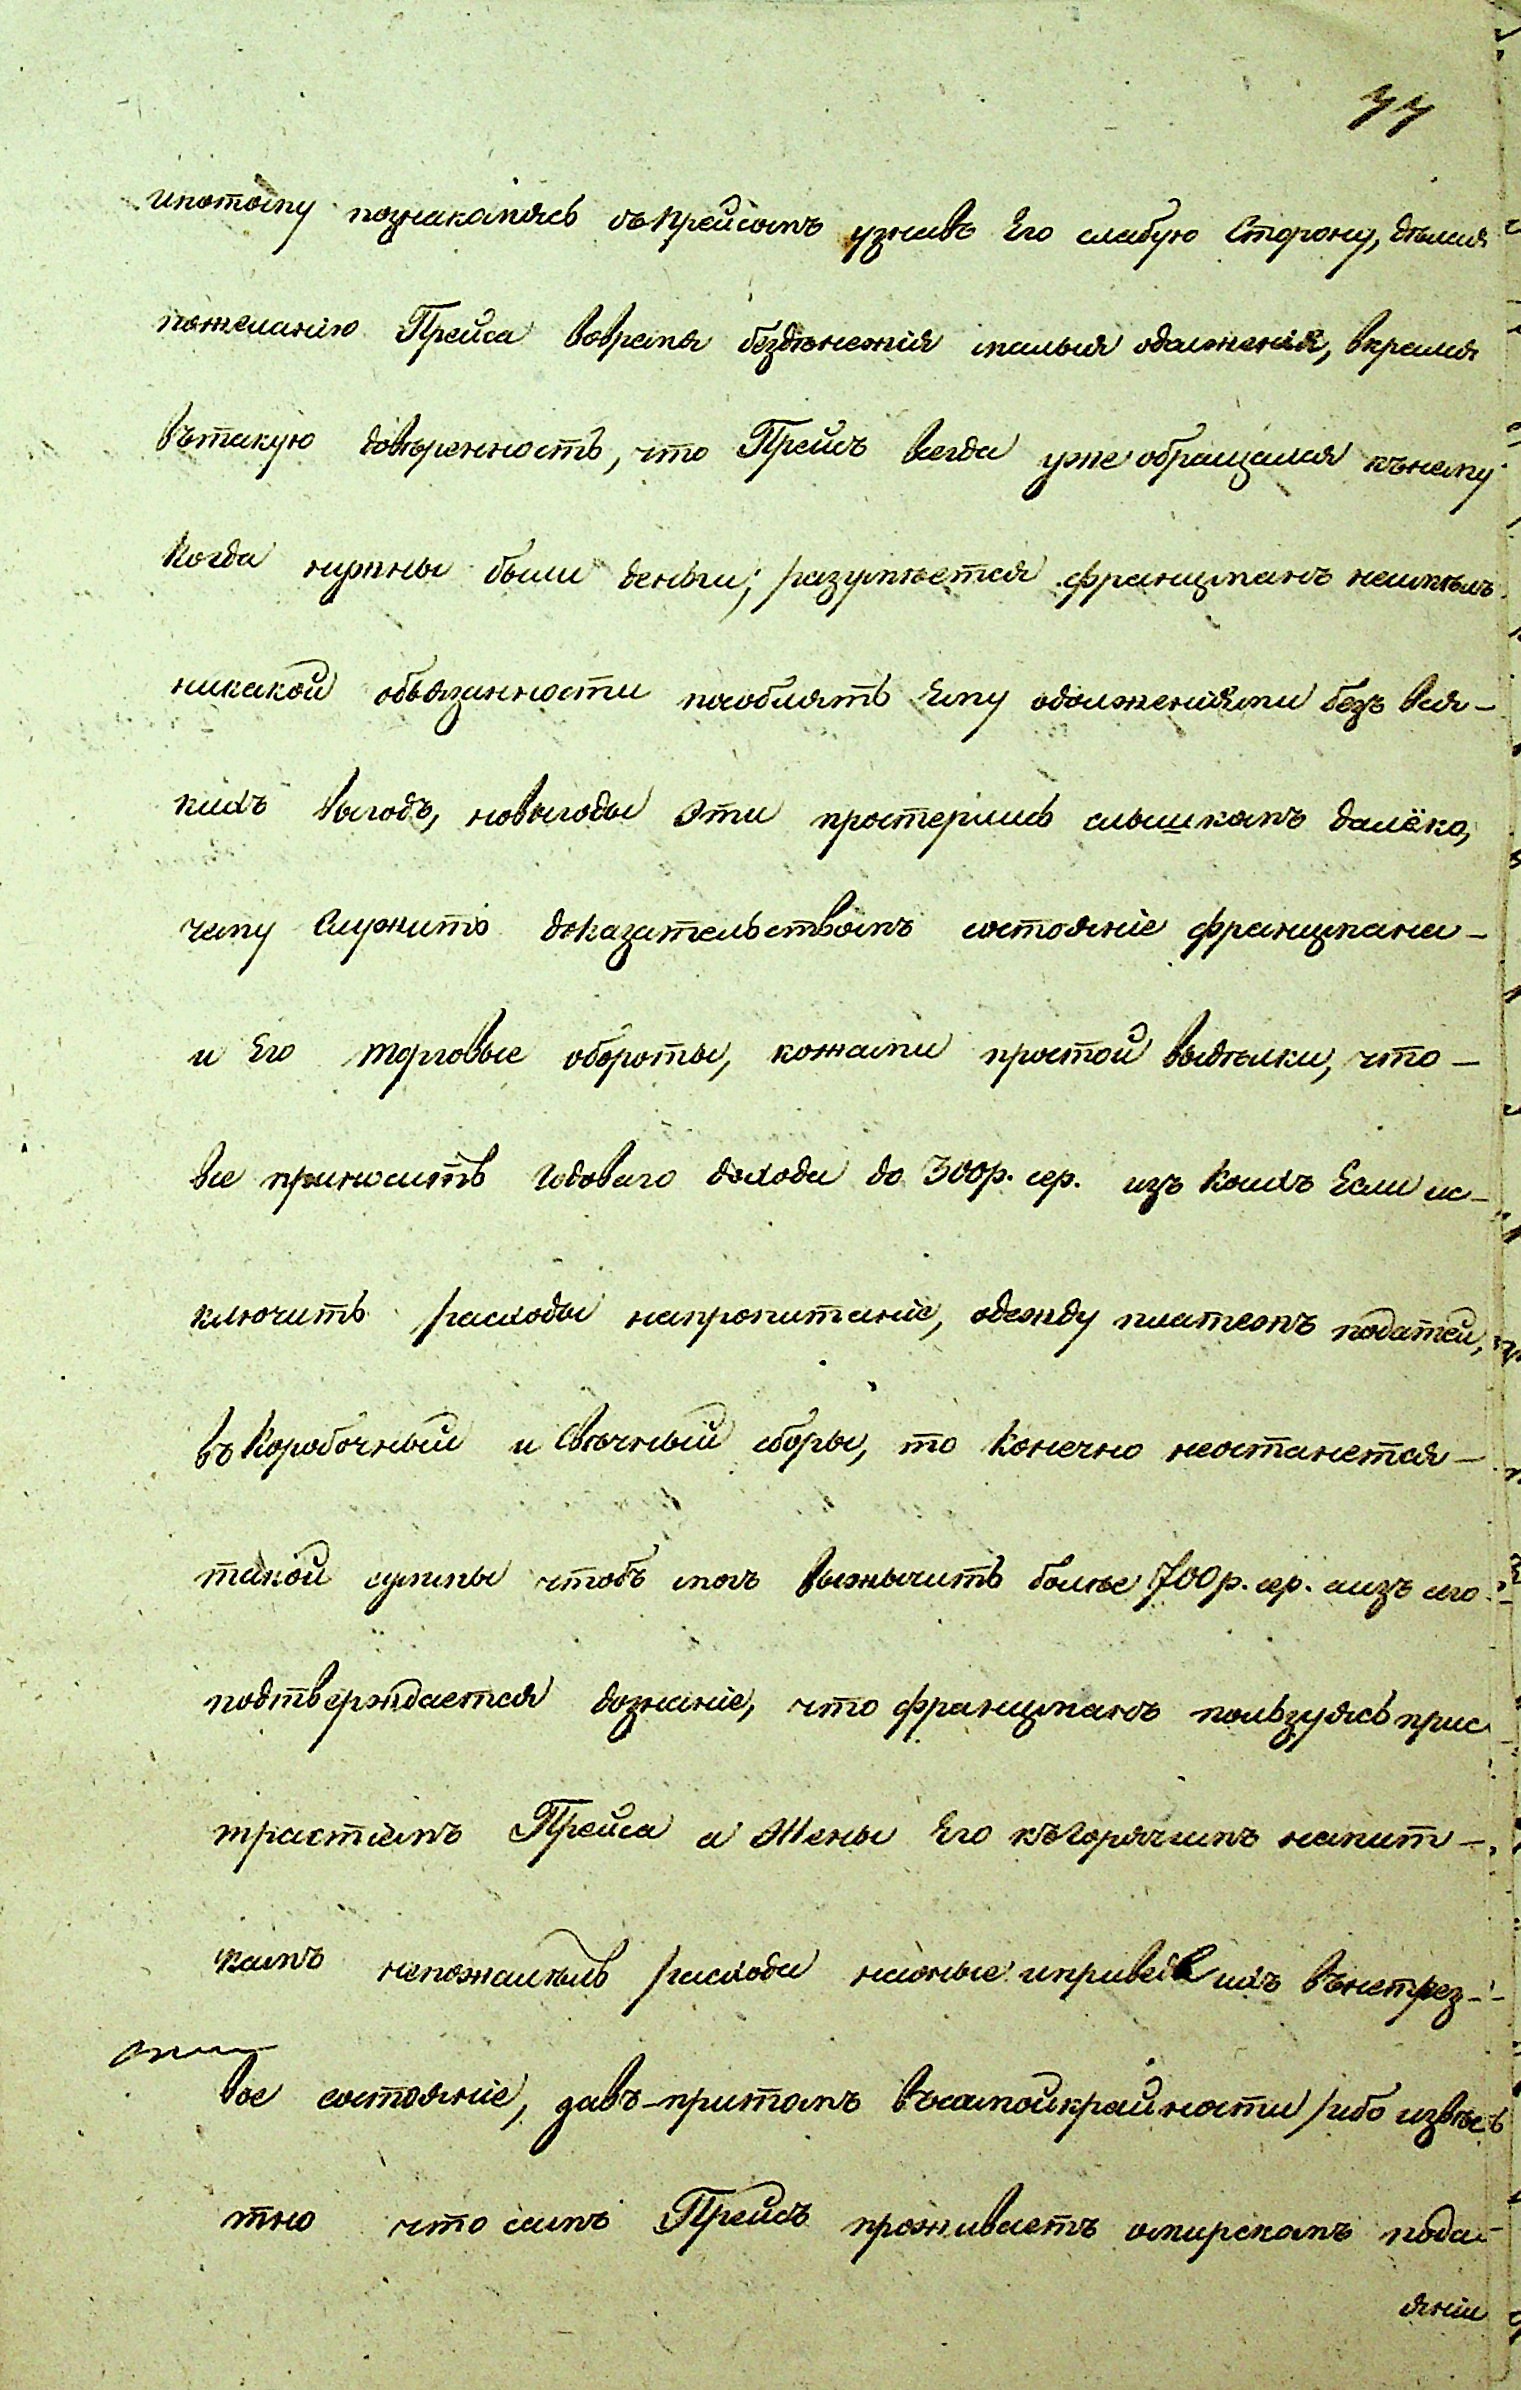 77
ипотому познакомясь съ Прейсомъ узнавъ Его слабую Сторону, дѣлая
пожеланію Прейса вовремя бездѣнежія малыя одолженія, вкрался
вътакую довѣренность, что Прейсъ всегда уже обращался кънему
когда нужны были деньги; разумѣется францманъ неимѣлъ
никакой обьязанности пособлять Ему одолженіями безъ вся-
кихъ выгодъ, новыгоды Эти простерлись слышкомъ далёко,
чему Служитъ доказательствомъ состояніе францмана -
и Его торговые обороты, кожами простой выдѣлки, что -
все приноситъ годоваго дохода до 300 р. сер. изъ коихъ Если ис-
ключить расходы напропитаніе, одежду платежъ податей,
въ Коробочный и Свѣчный сборы, то конечно неостанется -
такой суммы чтобъ могъ выжычить болѣе 700 р. сер. аизъ сего
подтверждается дознаніе, что францманъ пользуясь прис
трастіемъ Прейса и Жены Его къгорячимъ напит-
камъ непожалѣлъ расхода наоные ипривевъ ихъ вънетрез-
вое состояніе, давъ-притомъ въсамойкрайности /ибо извѣс
тно что самъ Прейсъ проживаетъ омирскомъ пода-
яніи